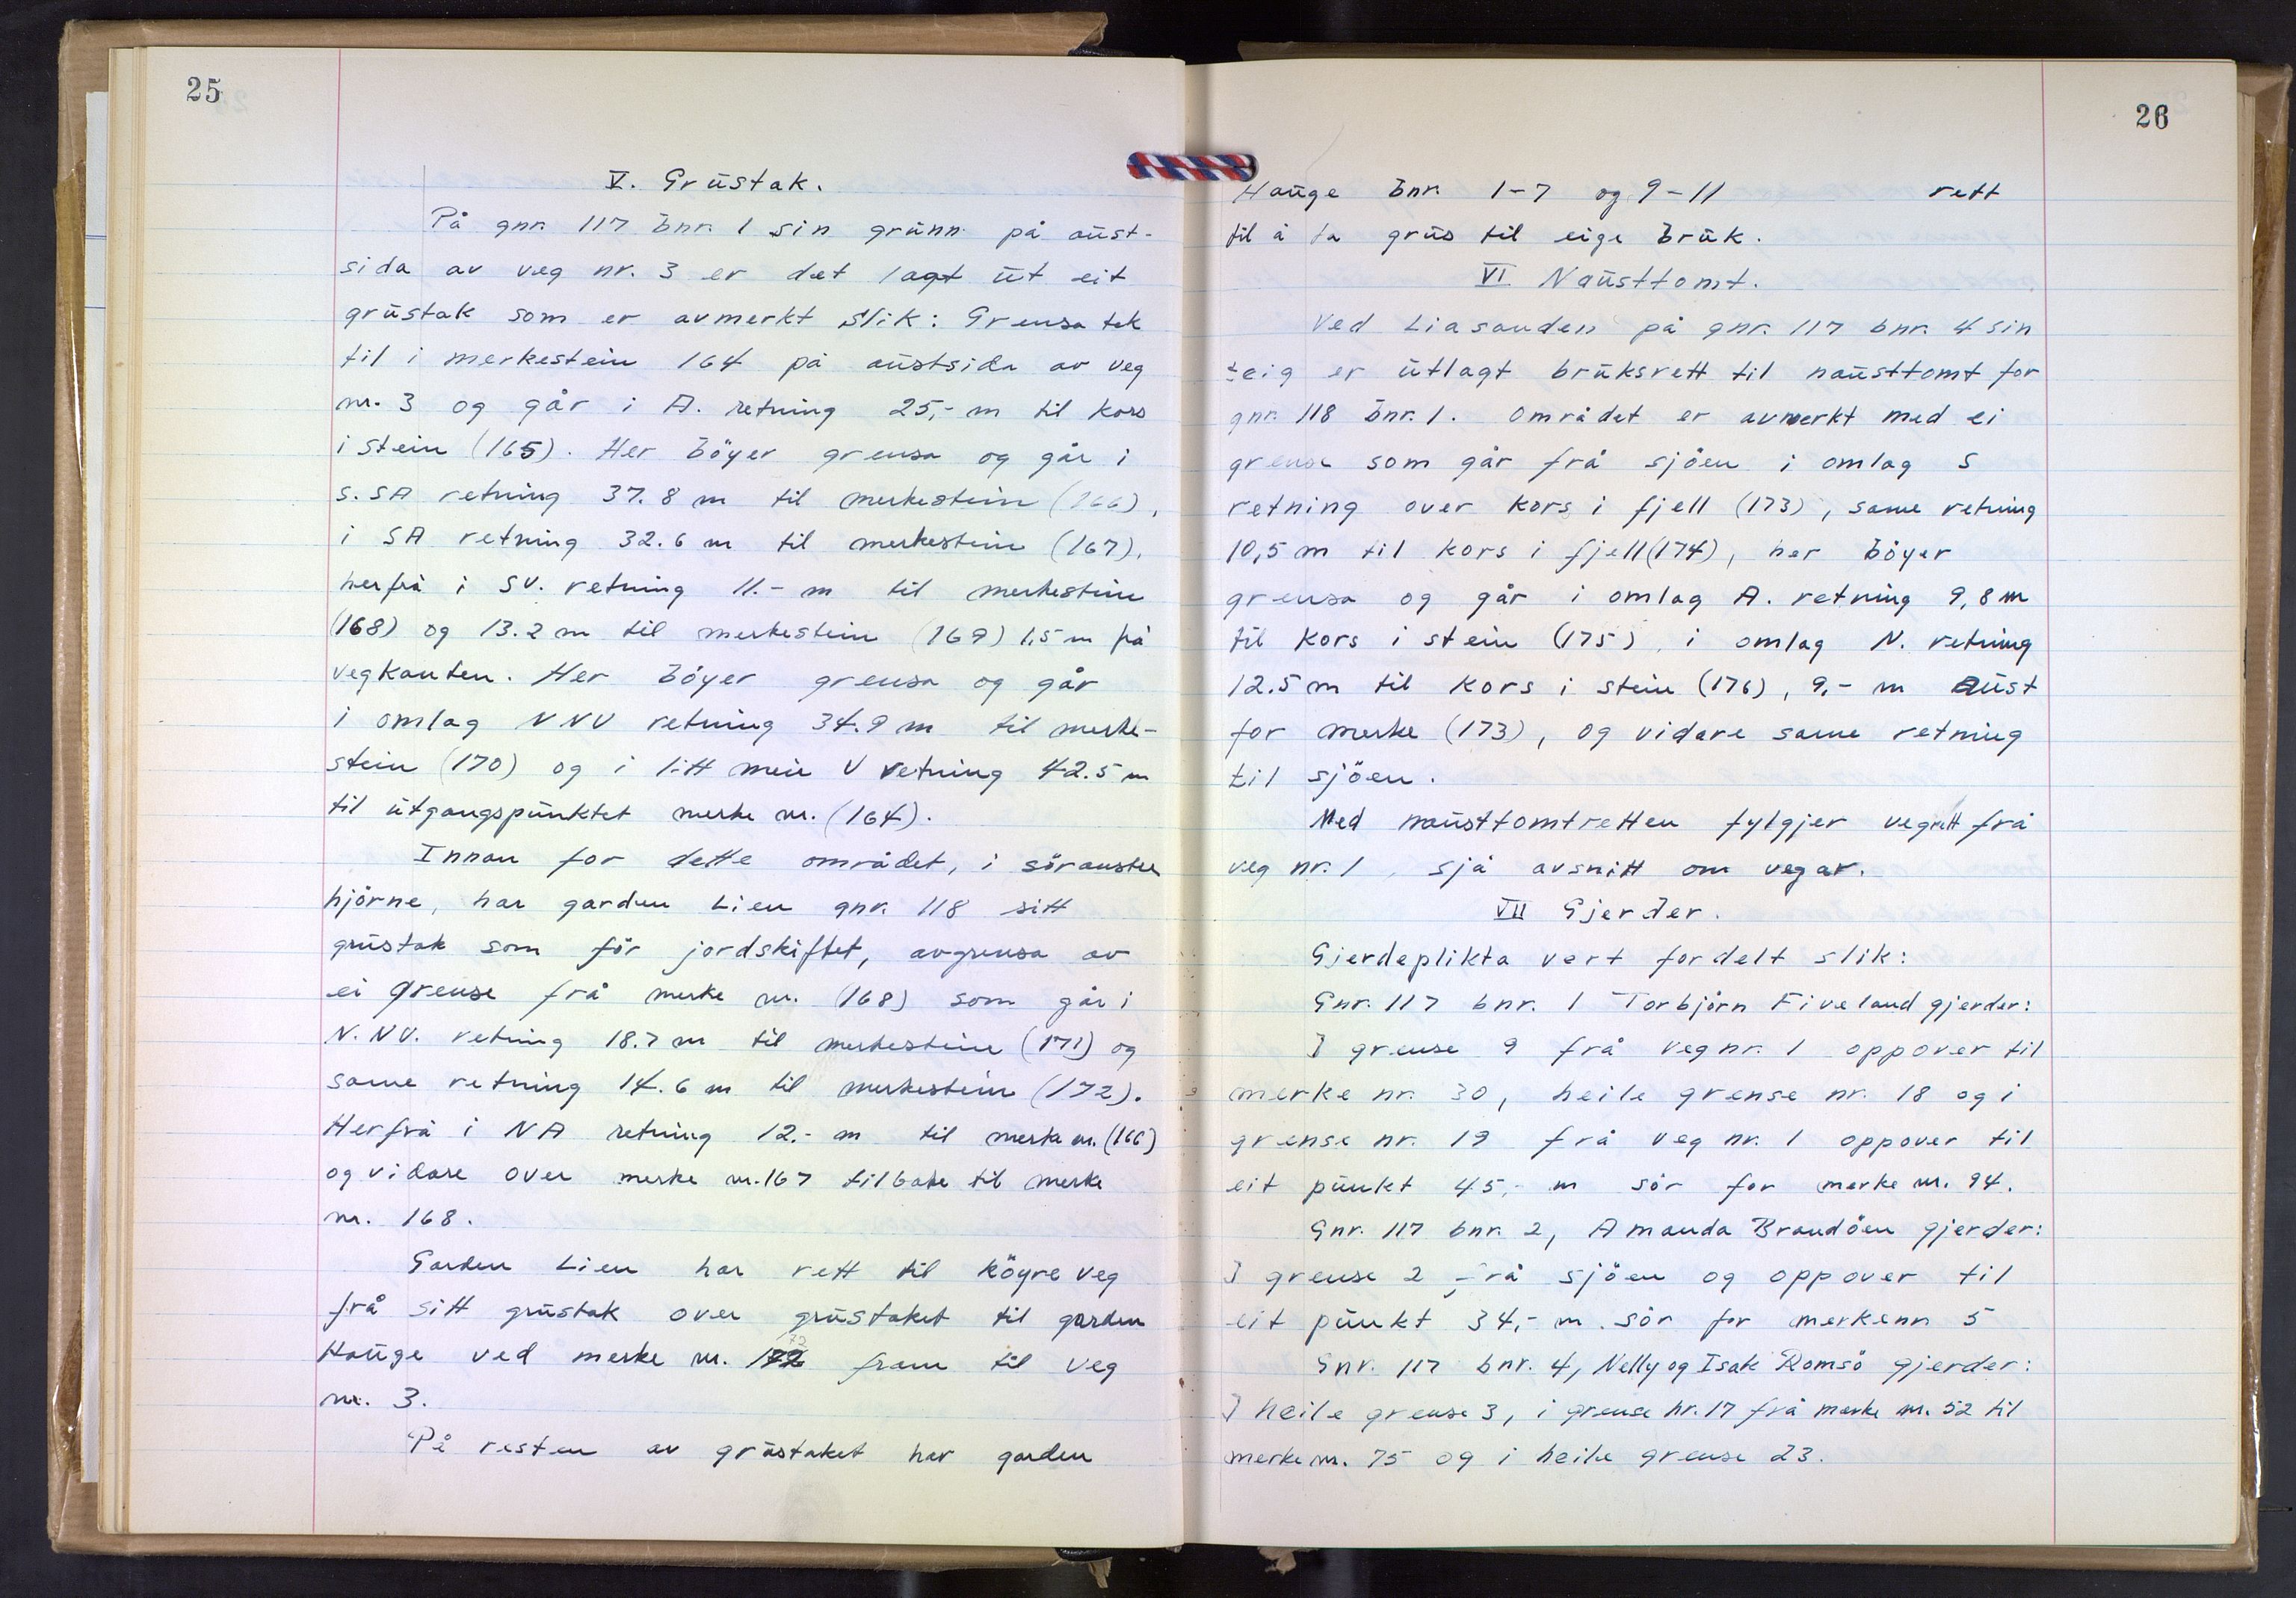 25
V. Grustak.
På gnr. 117 bnr. 1 sin grunn på aust-
sida av veg nr. 3 er det lagt ut eit
grustak som er avmerkt slik: Grensa tek
til i merkestein 164 på austsida av veg
nr. 3 og går i A. retning 25,- m til kors
i stein (165). Her böyer grensa og går i
S. SA retning 37.8 m til merkestein (166),
i SA retning 32.6 m til merkestein (167),
herfrå i SV. retning 11.- m til merkestein
(168) og 13.2 m til merkestein (169) 1,5 m frå
vegkanten. Her böyer grensa og går
i omlag NNV retning 34.9 m til merke-
stein (170) og i litt meir V retning 42.5 m
til utgangspunktet merke nr. (164).
Innan for dette området, i söraustre
hjörne, har garden Lien gnr. 118 sitt
grustak som för jordskiftet, avgrensa av
ei grense frå merke nr. (168) som går i
N.NV. retning 18.7 m til merkestein (171) og
same retning 14.6 m til merkestein (172).
Herfrå i NA retning 12.- m til merke nr. (166)
og vidare over merke nr. 167 tilbake til merke
nr. 168.
Garden Lien har rett til köyre veg
frå sitt grustak over grustaket til garden
Hauge ved merke nr. 172 fram til veg
nr. 3.
På resten av grustaket har garden
26
Hauge bnr. 1-7 og 9-11 rett
til å ta grus til eige bruk.
VI Nausttomt.
Ved Liasanden på gnr. 117 bnr. 4 sin
teig er utlagt bruksrett til nausttomt for
gnr. 118 bnr. 1. Området er avmerkt med ei
grense som går frå sjöen i omlag S
retning over kors i fjell (173), same retning
10,5 m til kors i fjell (174), her böyer
grensa og går i omlag A. retning 9,8 m
til kors i stein (175), i omlag N. retning
12.5 m til kors i stein (176), 9,- m aust
for merke (173), og vidare same retning
til sjöen.
Med nausttomtretten fylgjer vegrett frå
veg nr. 1, sjå avsnitt om vegar.
VII Gjerder.
Gjerdeplikta vert fordelt slik:
Gnr. 117 bnr. 1 Torbjörn Fiveland gjerder:
I grense 9 frå veg nr. 1 oppover til
merke nr. 30, heile grense nr. 18 og i
grense nr. 19 frå veg nr. 1 oppover til
eit punkt 45,- m sör for merke nr. 94.
Gnr. 117 bnr. 2, Amanda Brandöen gjerder:
I grense 2 frå sjöen og oppover til
eit punkt 34,- m sör for merkenr 5
Gnr. 117 bnr. 4, Nelly og Isak Romsö gjerder:
I heile grense 3, i grense nr. 17 frå merke nr. 52 til
merke nr. 75 og i heile grense 23.